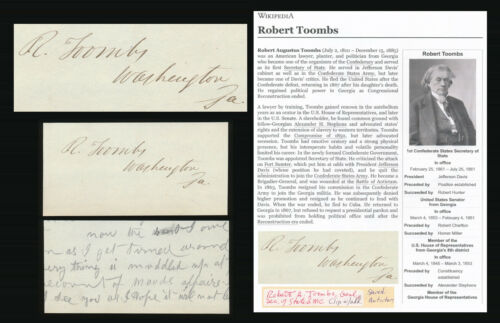 R. Toombs
Washington
Ga.
R. Toombs
Washington
Ga.
now the
as I get turned around
every thing is muddled up at
account of
I see you as I hope it will not be
WIKIPEDIA
Robert Toombs
Robert Augustus Toombs (July 2, 1810 – December 15, 1885)
was an American lawyer, planter, and politician from Georgia
who became one of the organizers of the Confederacy and served
as its first Secretary of State. He served in Jefferson Davis'
cabinet as well as in the Confederate States Army, but later
became one of Davis' critics. He fled the United States after the
Confederate defeat, returning in 1867 after his daughter's death.
He regained political power in Georgia as Congressional
Reconstruction ended.
A lawyer by training, Toombs gained renown in the antebellum
years as an orator in the U.S. House of Representatives, and later
in the U.S. Senate. A slaveholder, he found common ground with
fellow-Georgian Alexander H. Stephens and advocated states'
rights and the extension of slavery to western territories. Toombs
supported the Compromise of 1850, but later advocated
secession. Toombs had emotive oratory and a strong physical
presence, but his intemperate habits and volatile personality
limited his career. In the newly formed Confederate Government,
Toombs was appointed Secretary of State. He criticized the attack
on Fort Sumter, which put him at odds with President Jefferson
Davis (whose position he had coveted), and he quit the
administration to join the Confederate States Army. He became a
Brigadier-General, and was wounded at the Battle of Antietam.
In 1863, Toombs resigned his commission in the Confederate
Army to join the Georgia militia. He was subsequently denied
higher promotion and resigned as he continued to feud with
Davis. When the war ended, he fled to Cuba. He returned to
Georgia in 1867, but refused to request a presidential pardon and
was prohibited from holding political office until after the
Reconstruction era ended.
R. Toombs
Washington
Ga.
Robert A. Toombs, Conf.
Sec. of State & MC Clip
Saved
Antietam
Robert Toombs
1st Confederate States Secretary of
State
In office
February 25, 1861 – July 25, 1861
President Jefferson Davis
Preceded by Position established
Succeeded by Robert Hunter
United States Senator
from Georgia
In office
March 4, 1853 – February 4, 1861
Preceded by Robert Charlton
Succeeded by Homer Miller
Member of the
U.S. House of Representatives
from Georgia's 8th district
In office
March 4, 1845 – March 3, 1853
Preceded by Constituency
established
Succeeded by Alexander Stephens
Member of the
Georgia House of Representatives